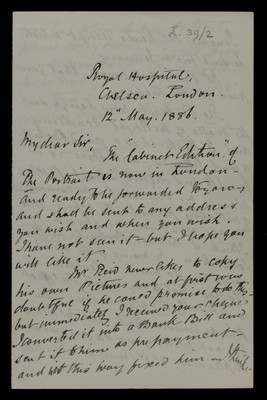 L. 39/2
Royal Hospital,
Chelsea. London.
12" May. 1886.
My dear Sir,
The "Cabinet Edition" of
The Portrait is now in London -
and ready to be forwarded to you,
and shall be sent to any address
you wish and when you wish.
I have not seen it - but I hope you
will like it.
Mr Reid never likes to copy
his own Pictures and at first was
doubtful if he could promise to do this
but immediately I received your cheque
I converted it into a Bank Bill and
sent it to him as pre payment -
and this way fixed him -